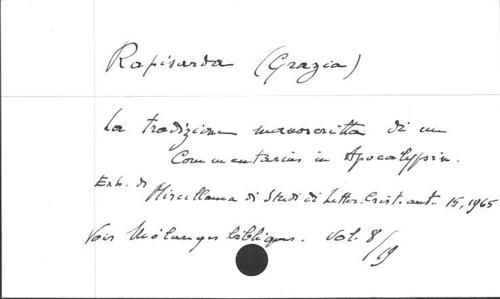 Rapisarda (Grazia)
La tradizione manoscritta di un
Commentarius in Apocalypsin.
Extr. di Miscellanea di Studi di Letter. Crist. ant. 15, 1965
Voir Mélanges bibliques. vol. 8/19